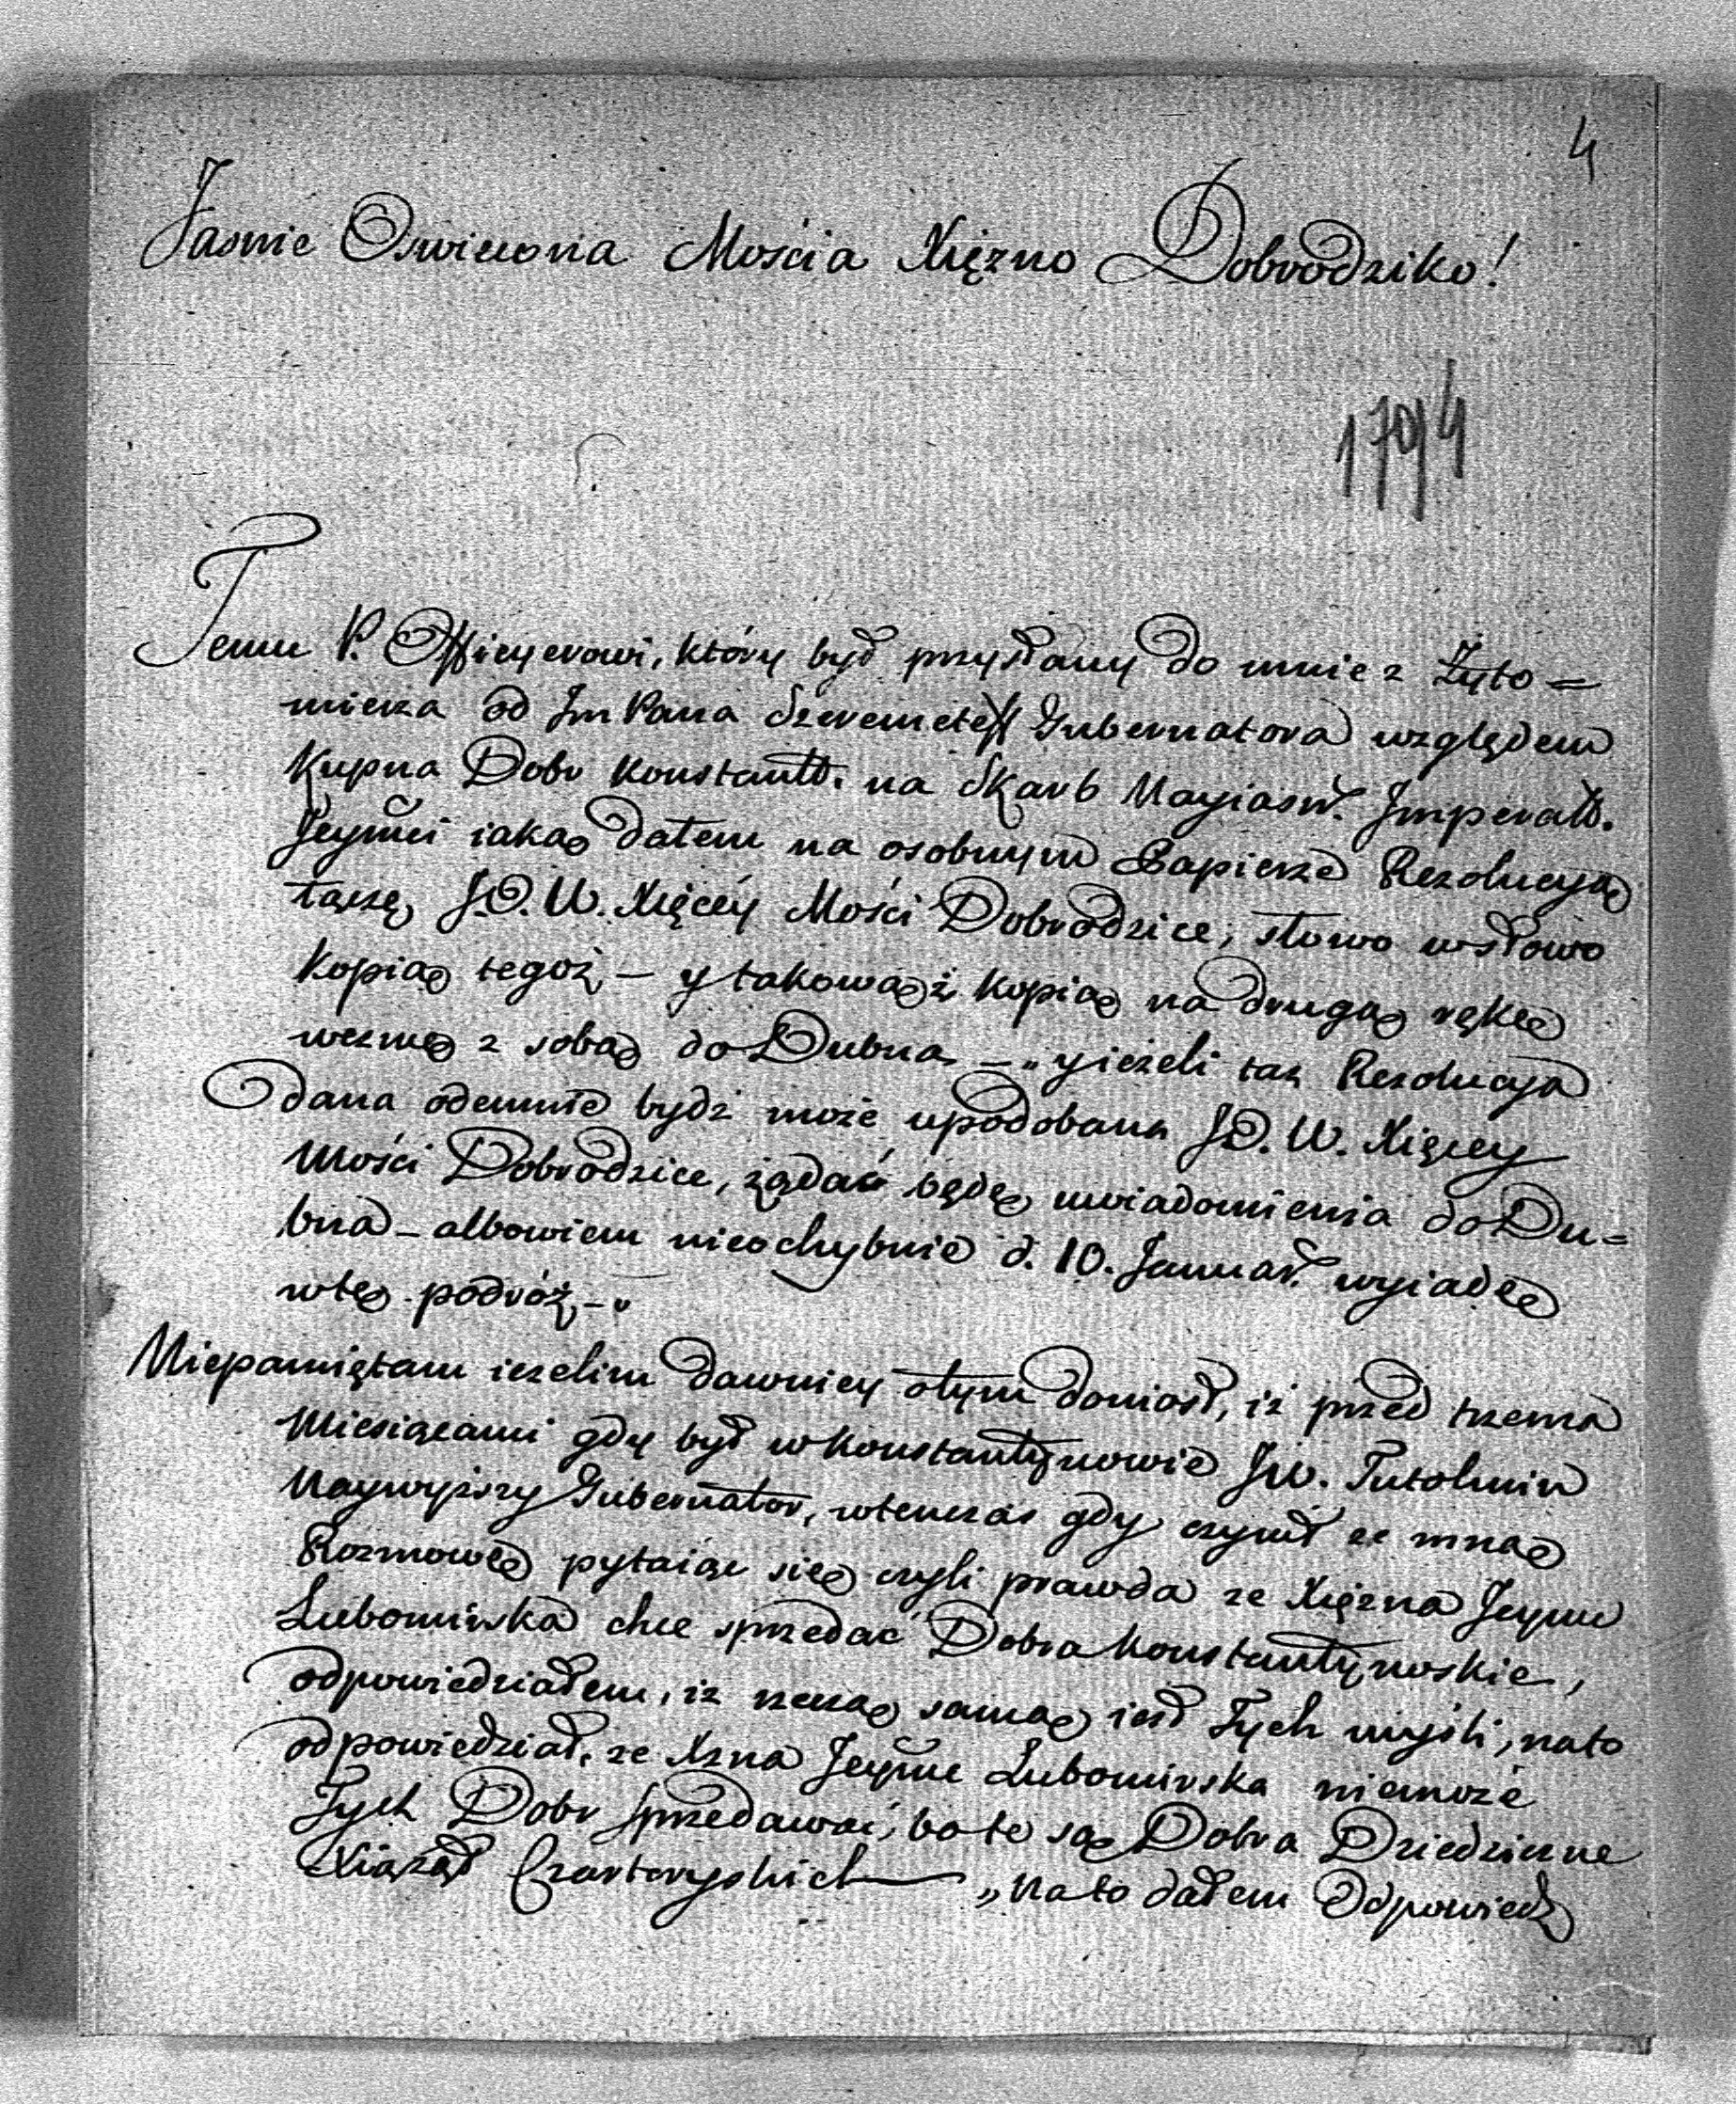 4
Jasnie Oswiecona Mościa Xiężno Dobrodziko!
1794
Temu P. Officyerowi, który był przysłany do mnie z Żyto=
mierza od Jm Pana Szeremeteff Gubernatora względem
Kupna Dobr Konstantt. na Skarb Nayiasn. Imperatt.
Jeymci iaką dałem na osobnym Papierze Rezolucyą
łączę J.O.W. Xięcéy Mości Dobrodzice, słowo wsłowo
Kopią tegoż – y takowąż kopią na drugą rękę
wezmę z sobą do Dubna – „ yieżeli taż Rezolucya
dana odemnie bydź może upodobana J.O.W. Xięcey
Mości Dobrodzice, żądać będę uwiadomienia do Du=
bna – albowiem nieochybnie d. 10. Januar. wyiadę
wtę podróż –
Niepamiętam ieżelim dawniey otym doniosł, iż przed trzema
Miesiącami gdy był w Konstantynowie Jw. Tutolmin
Naywyższy Gubernator, wtenczas gdy czynił ze mną
Rozmowę pytaiąc się czyli prawda ze Xiężna Jeymc
Lubomirska chce sprzedać Dobra Konstantynoskie,
odpowiedziałem, iż rzeczą samą iest Tych myśli; nato
odpowiedział, ze Xzna Jeymc Lubomirska niemoże
Tych Dobr sprzedawać, bo te są Dobra Dziedziczne
Xiążąt Czartoryskich — „ na to dałem Odpowiedz